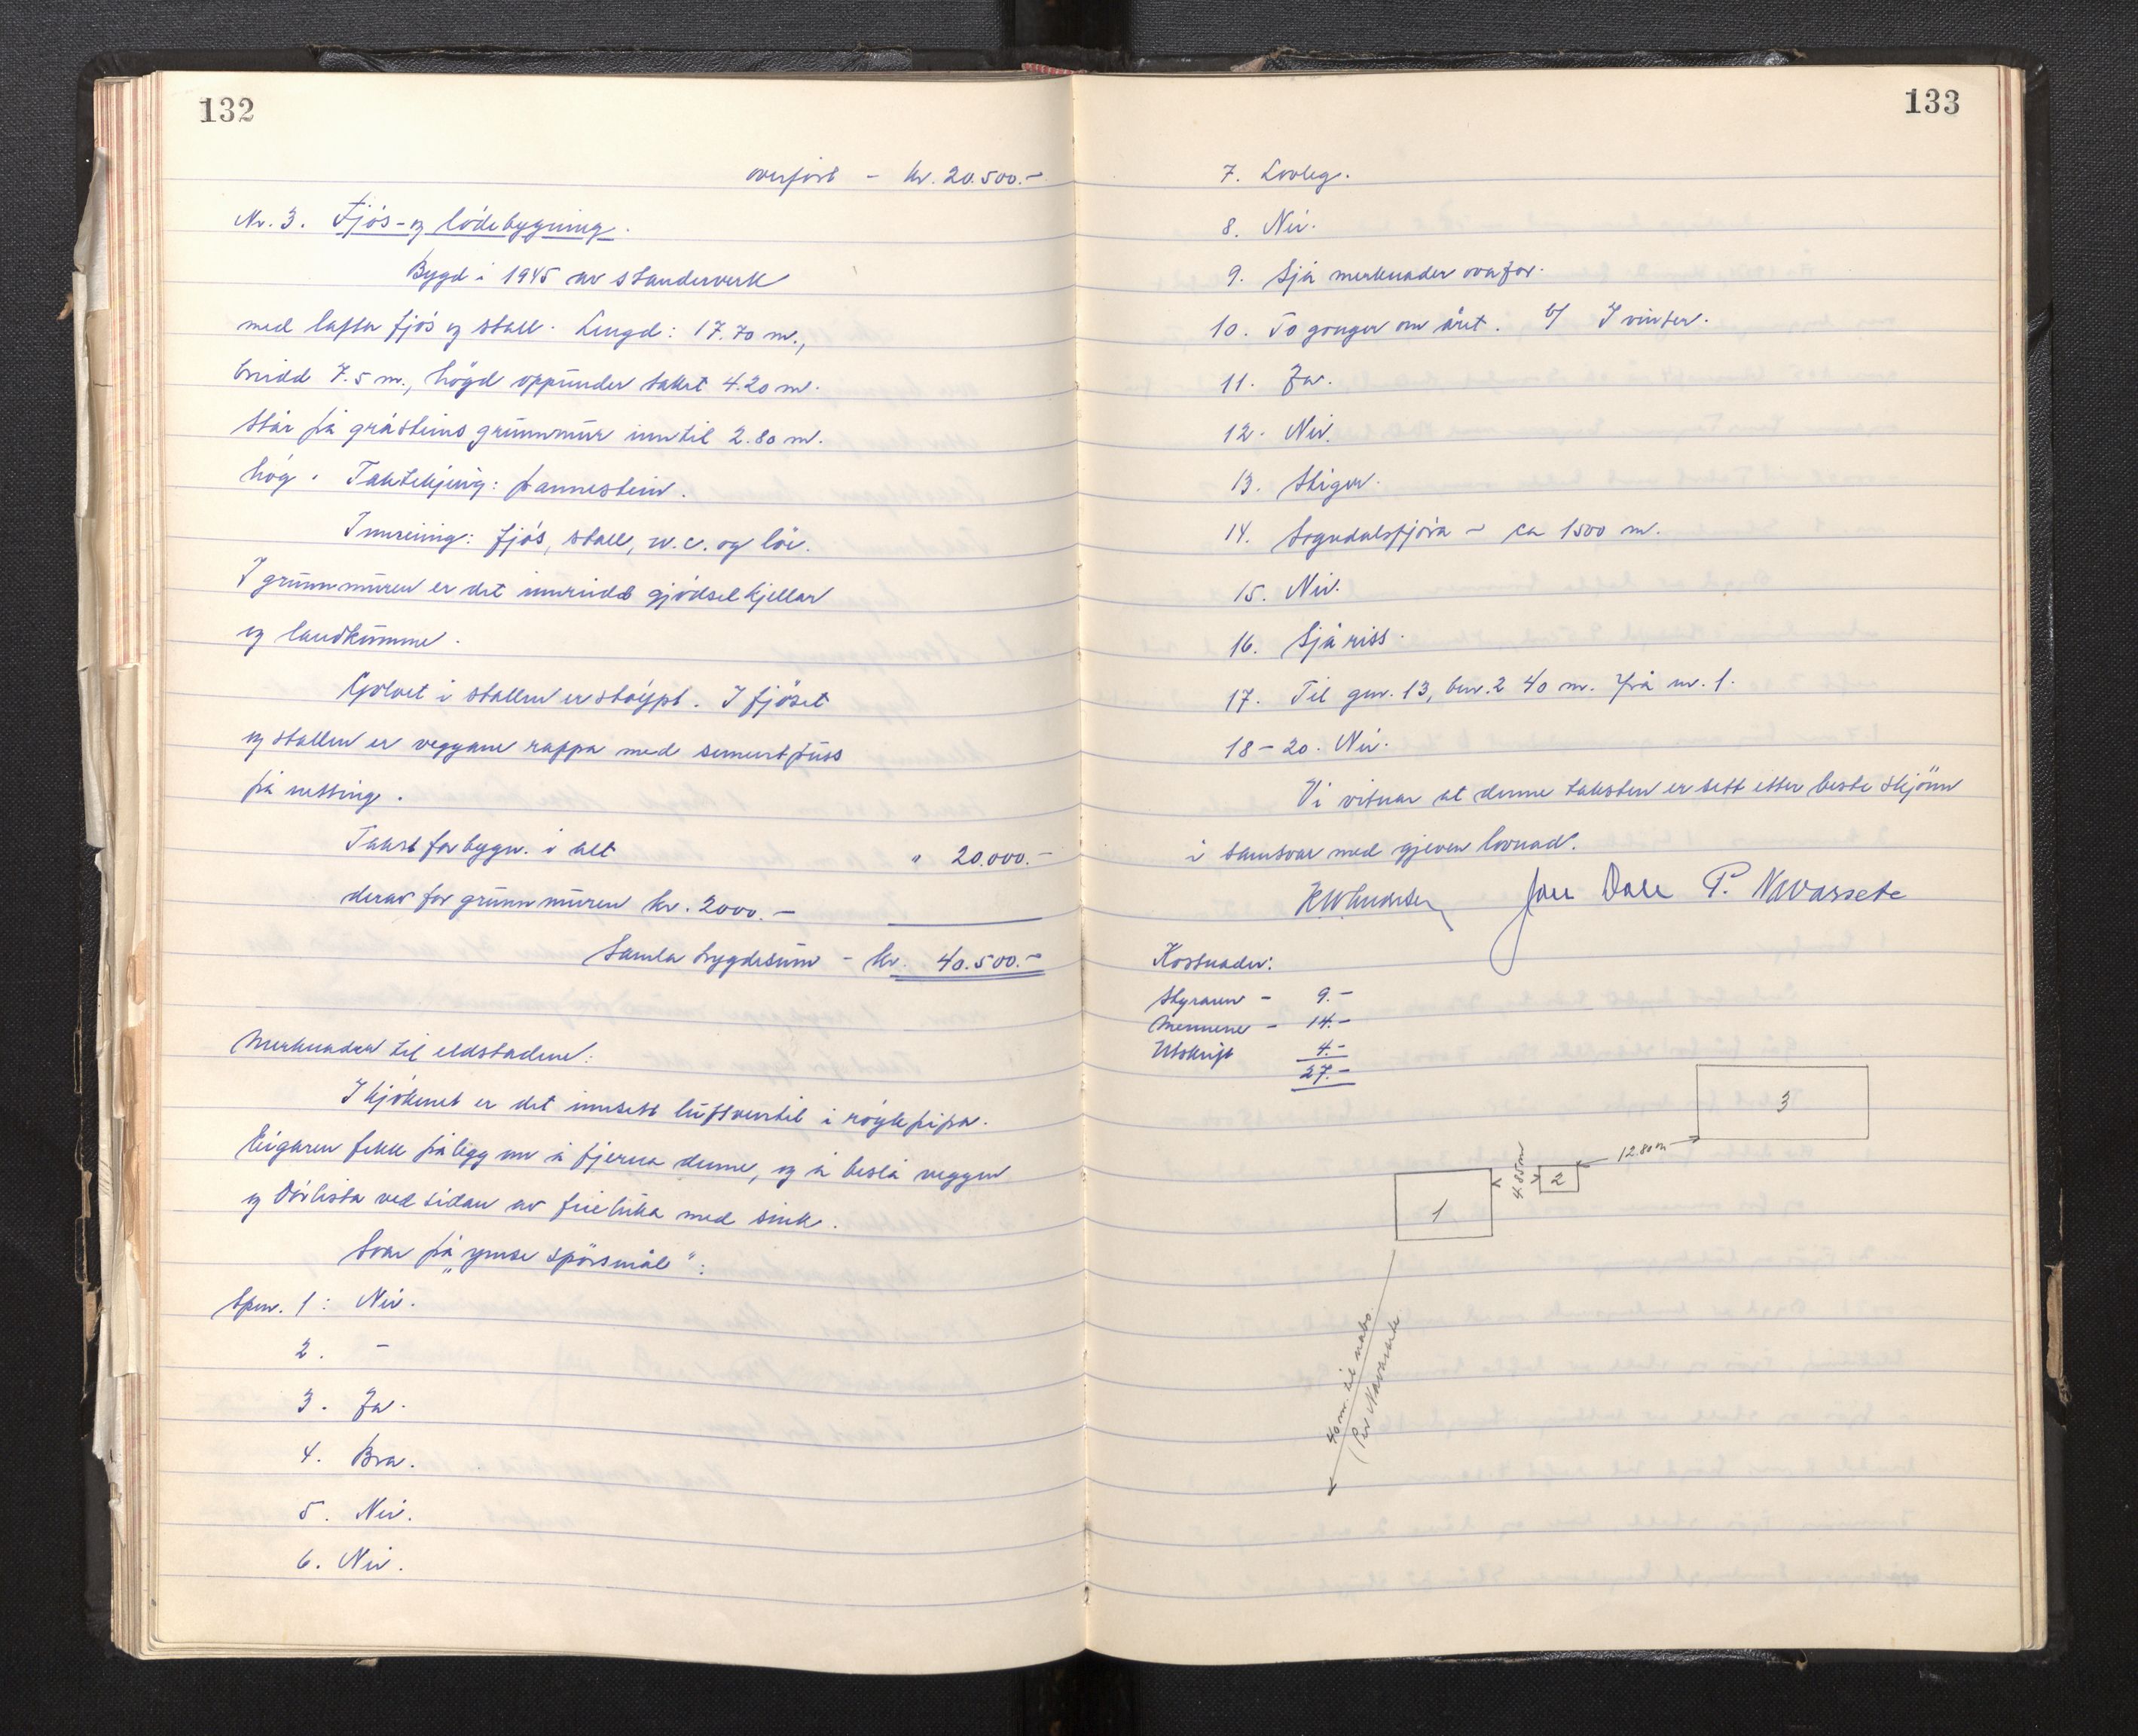 132
overført - kr. 20.500.-
Nr. 3. Fjós- og lödebygning.
Bygd i 1945 av standerverk
med lafta fjós og stall. Lengd: 17.70 m.,
breidd 7.5 m., högd oppunder taket 4.20 m.
Står på gråsteins grunnmur inntil 2.80 m.
hög. Taktekjing: pannestein.
Innreiing: fjós, stall, w.c. og löe.
I grunnmuren er det innreidd gjödselkjellar
og landkumme.
Golvet i stallen er stöypt. I fjöset
og stallen er veggane rappa med sementpuss
på netting.
Takst for bygn. i alt " 20.000.-
derav for grunnmuren kr. 2000.-
Samla bygdesum - kr. 40.500.-
Merknader til eldstadene:
I kjökenet er det innsett luftventil i röykpipa.
Eigaren fekk pålegg om å fjerna denne, og å beslå veggen
og dörlista ved sidan av feieluka med sink.
Svar på "ymse spörsmål":
Spm. 1: Nei.
2. -
3. Ja.
4. Bra.
5. Nei.
6. Nei.
133
7. Lovleg.
8. Nei.
9. Sjå merknader ovafor.
10. To gonger om året. b/ I vinter.
11. Ja.
12. Nei.
13. Stigar.
14. Sogndalsfjöra - ca 1500 m.
15. Nei.
16. Sjå riss.
17. Til gnr. 13, bnr. 2 40 m. frå nr. 1.
18-20. Nei.
Vi vitnar at denne taksten er sett etter beste skjönn
i samsvar med gjeven lovnad.
Dale P. Navarsete
Kostnader:
Styraren - 9.-
Mennene - 14.-
Utskrift 4.-
27.-
3
12.80 m
4.85 m
2
1
40 m. til nabo
(Per Navarsete